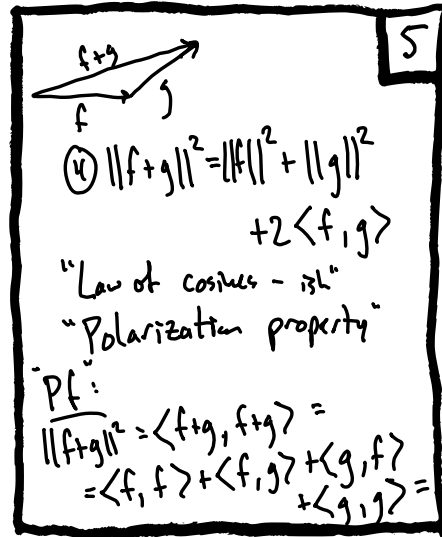 5
f+g
f
g
④ ||f+g||²=||f||²+||g||²
+2<f,g>
"Law of cosines - ish"
"Polarization property"
"Pf":
||f+g||²=<f+g,f+g>=
=<f,f>+<f,g>+<g,f>
+<g,g>=